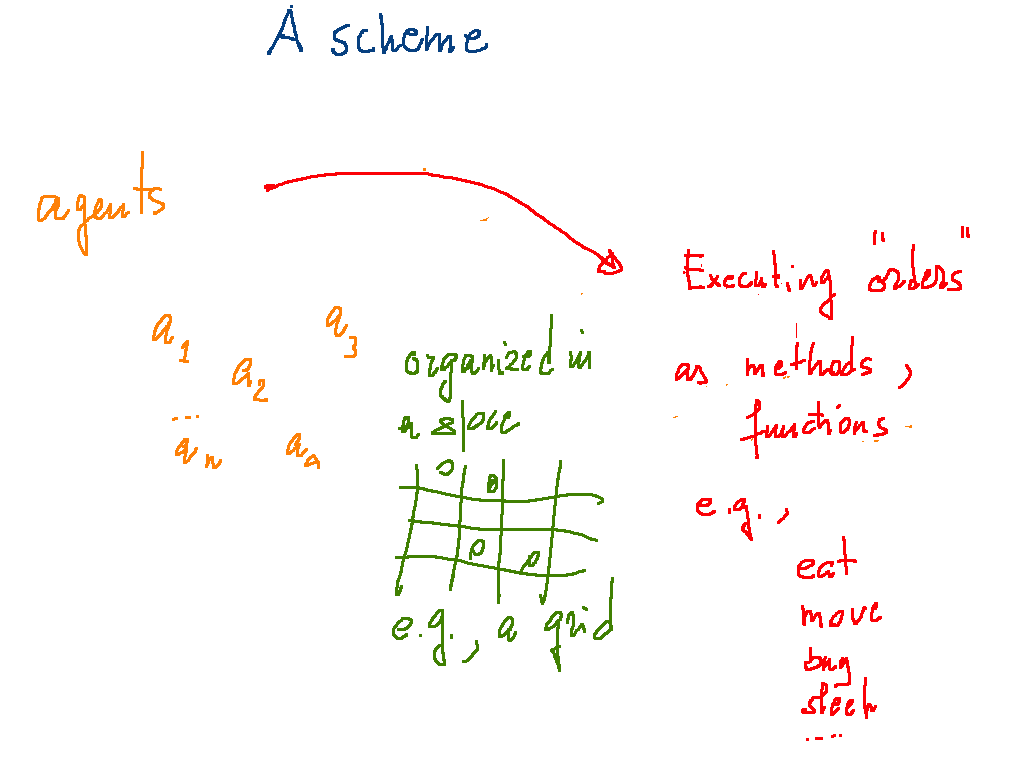 A scheme
agents
a1
a2
a3
...
an
organized in
a space
e.g., a grid
Executing "orders"
as methods,
functions
e.g.,
eat
move
buy
sleep
....